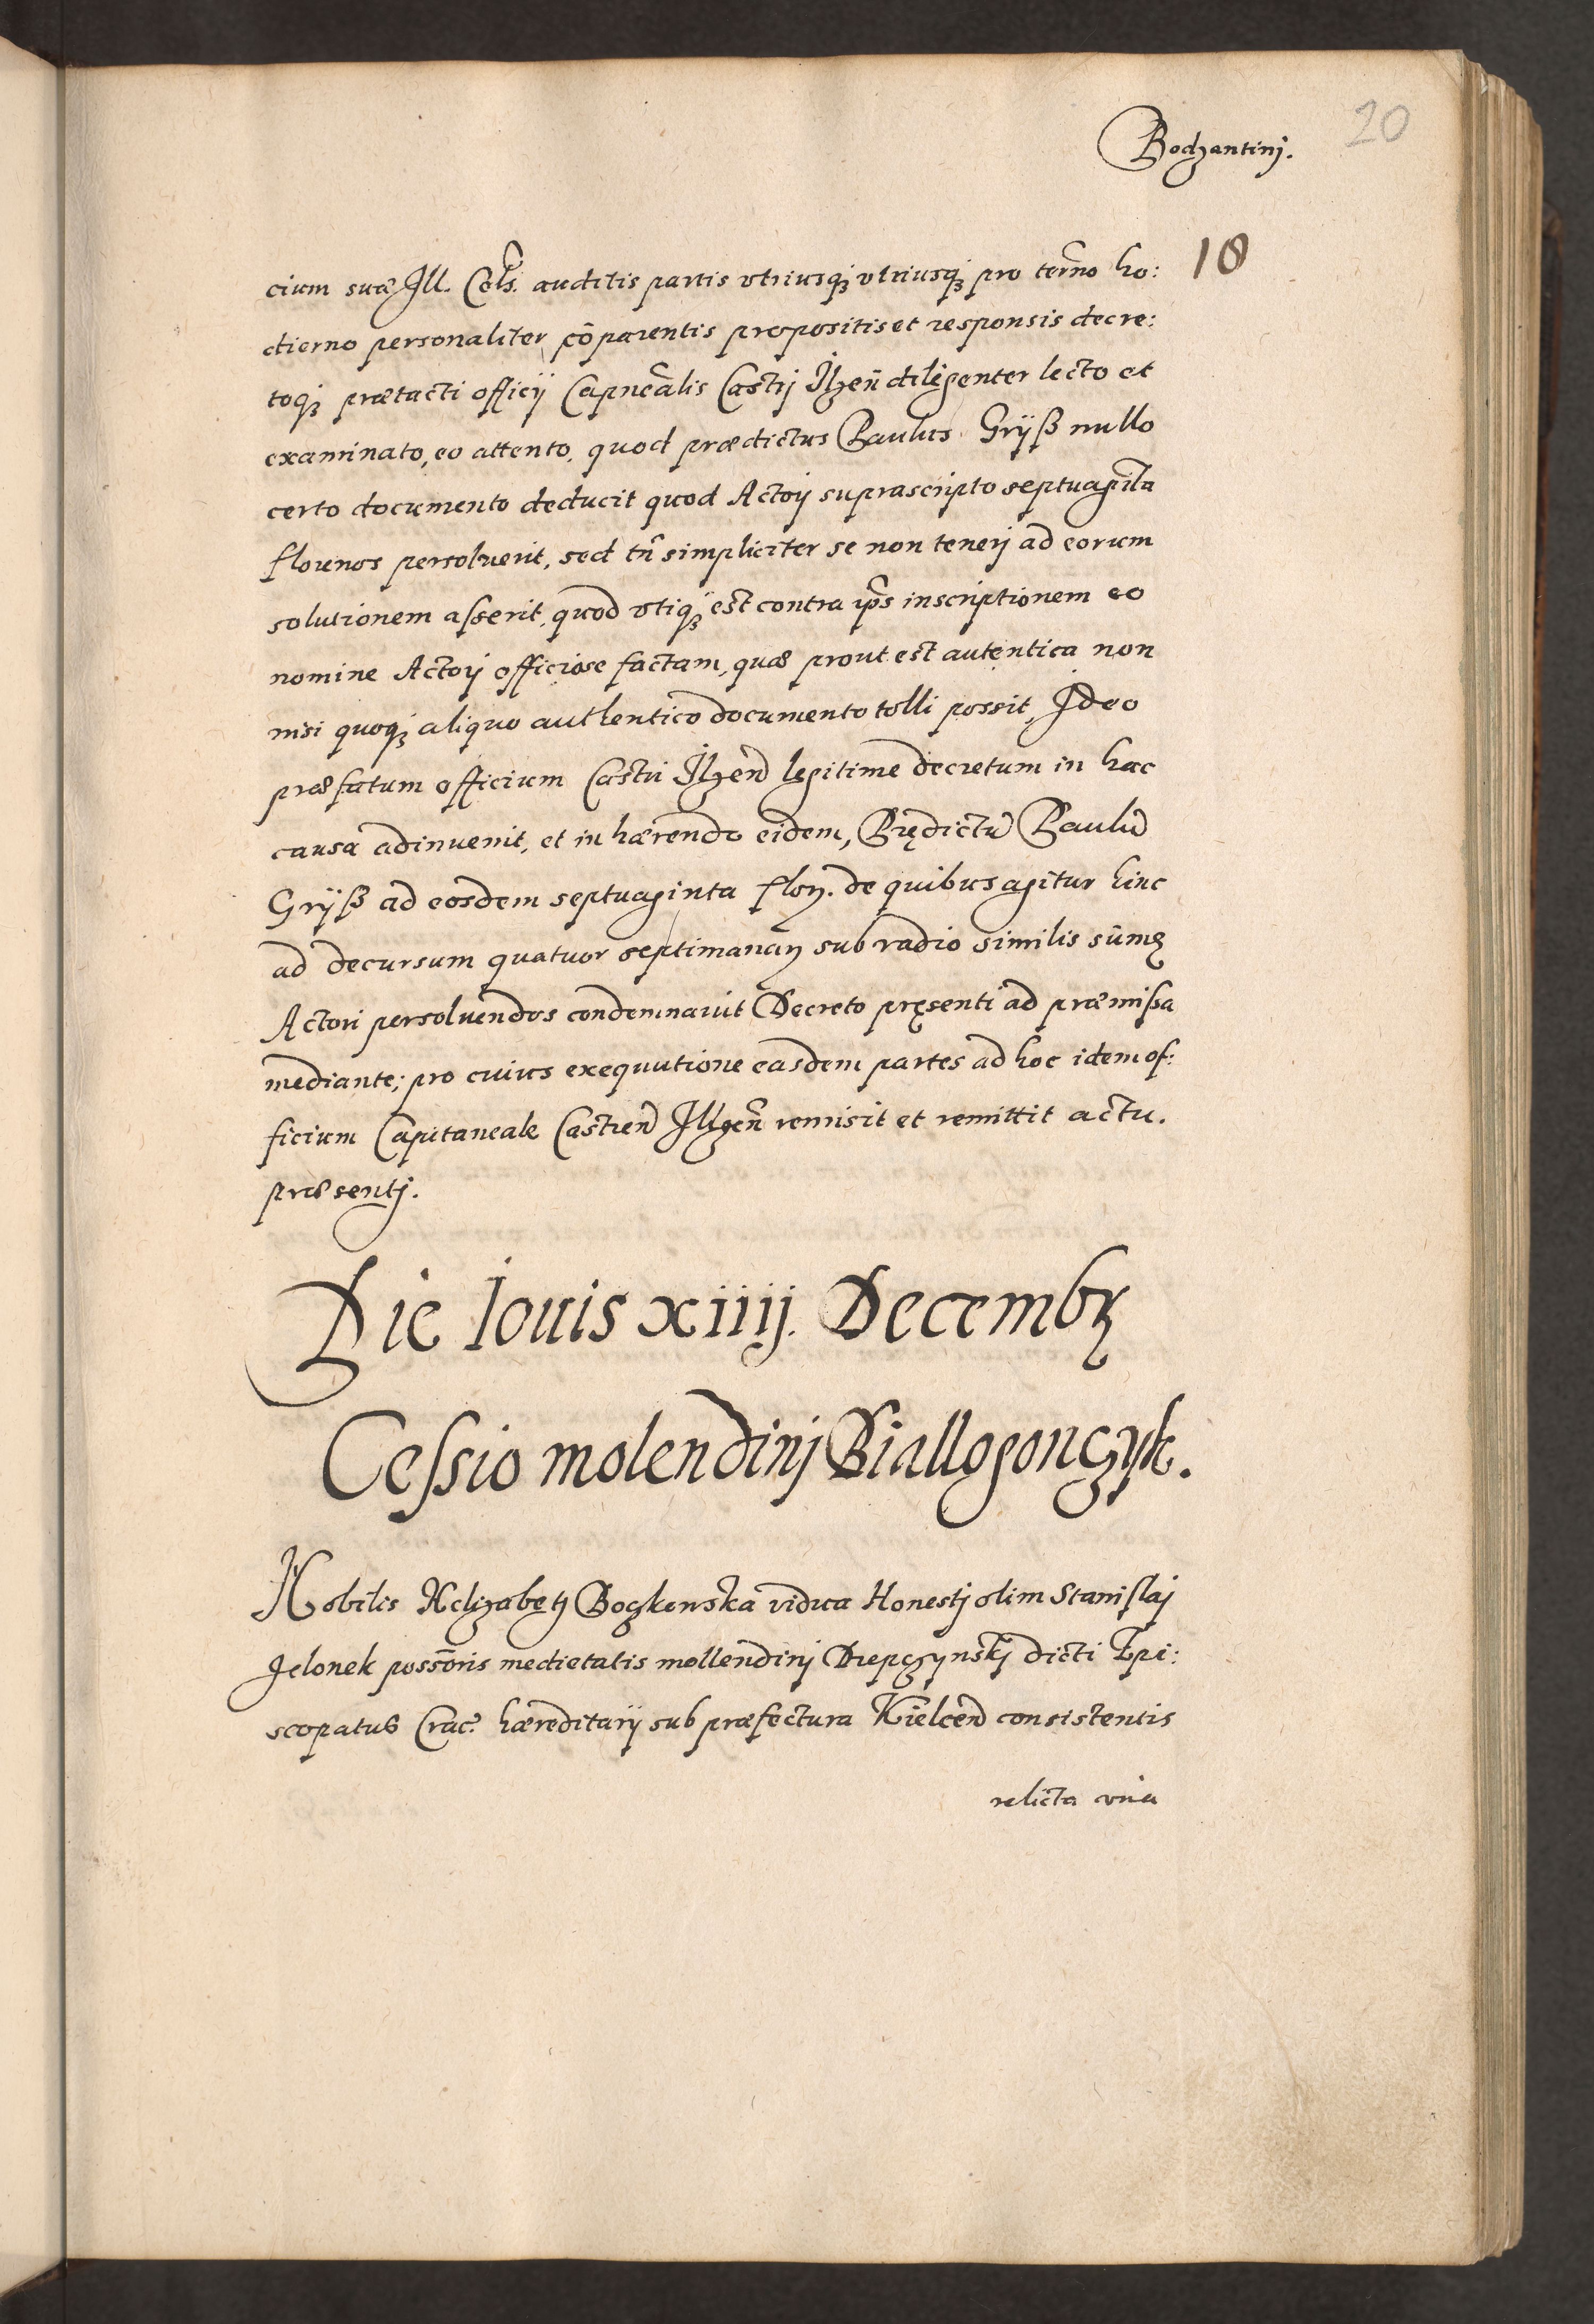 20
Bodzantinj.
18
cium suæ Ill. Cels. auditis partis vtriusq; vtriusq; pro termo ho:
dierno personaliter cōparentis propositis et responsis decre:
toq; prætacti officij Capnealis Castrj Ilzen̄ diligenter lecto et
examinato, eo attento, quod prædictus Paulus Gryß nullo
certo documento deducit quod Actorj suprascripto septuaginta
florenos persoluerit, sed tn̄ simpliciter se non tenerj ad eorum
solutionem asserit, quod vtiq; est contra ips inscriptionem eo
nomine Actorj officiose factam, quæ prout est autentica non
nisi quoq; aliquo authentico documento tolli possit, Ideo
præfatum officium Castri Ilzen̄ legitime decretum in hac
causa adinuenit, et in hærendo eidem, Prędictū Paulū
Gryß ad eosdem septuaginta flor. de quibus agitur hinc
ad decursum quatuor septimanarum sub vadio similis sūmę
Actori persoluendos condemnauit Decreto pręsenti ad præmissa
mediante; pro cuius exequutione easdem partes ad hoc idem of:
ficium Capitaneale Castren̄ Illzen̄ remisit et remittit actu.
præsentj.
Die Iouis xiiij. Decembr
Cessio molendinj Biallogonczyk.
Nobilis Helizabetj Boczkowska vidua Honestj olim Stanislaj
Jelonek possōris medietatis mollendinj Drepczynskj dicti Epi:
scopatus Crac. hæreditarij sub præfectura Kielcen̄ consistentis
relicta vna